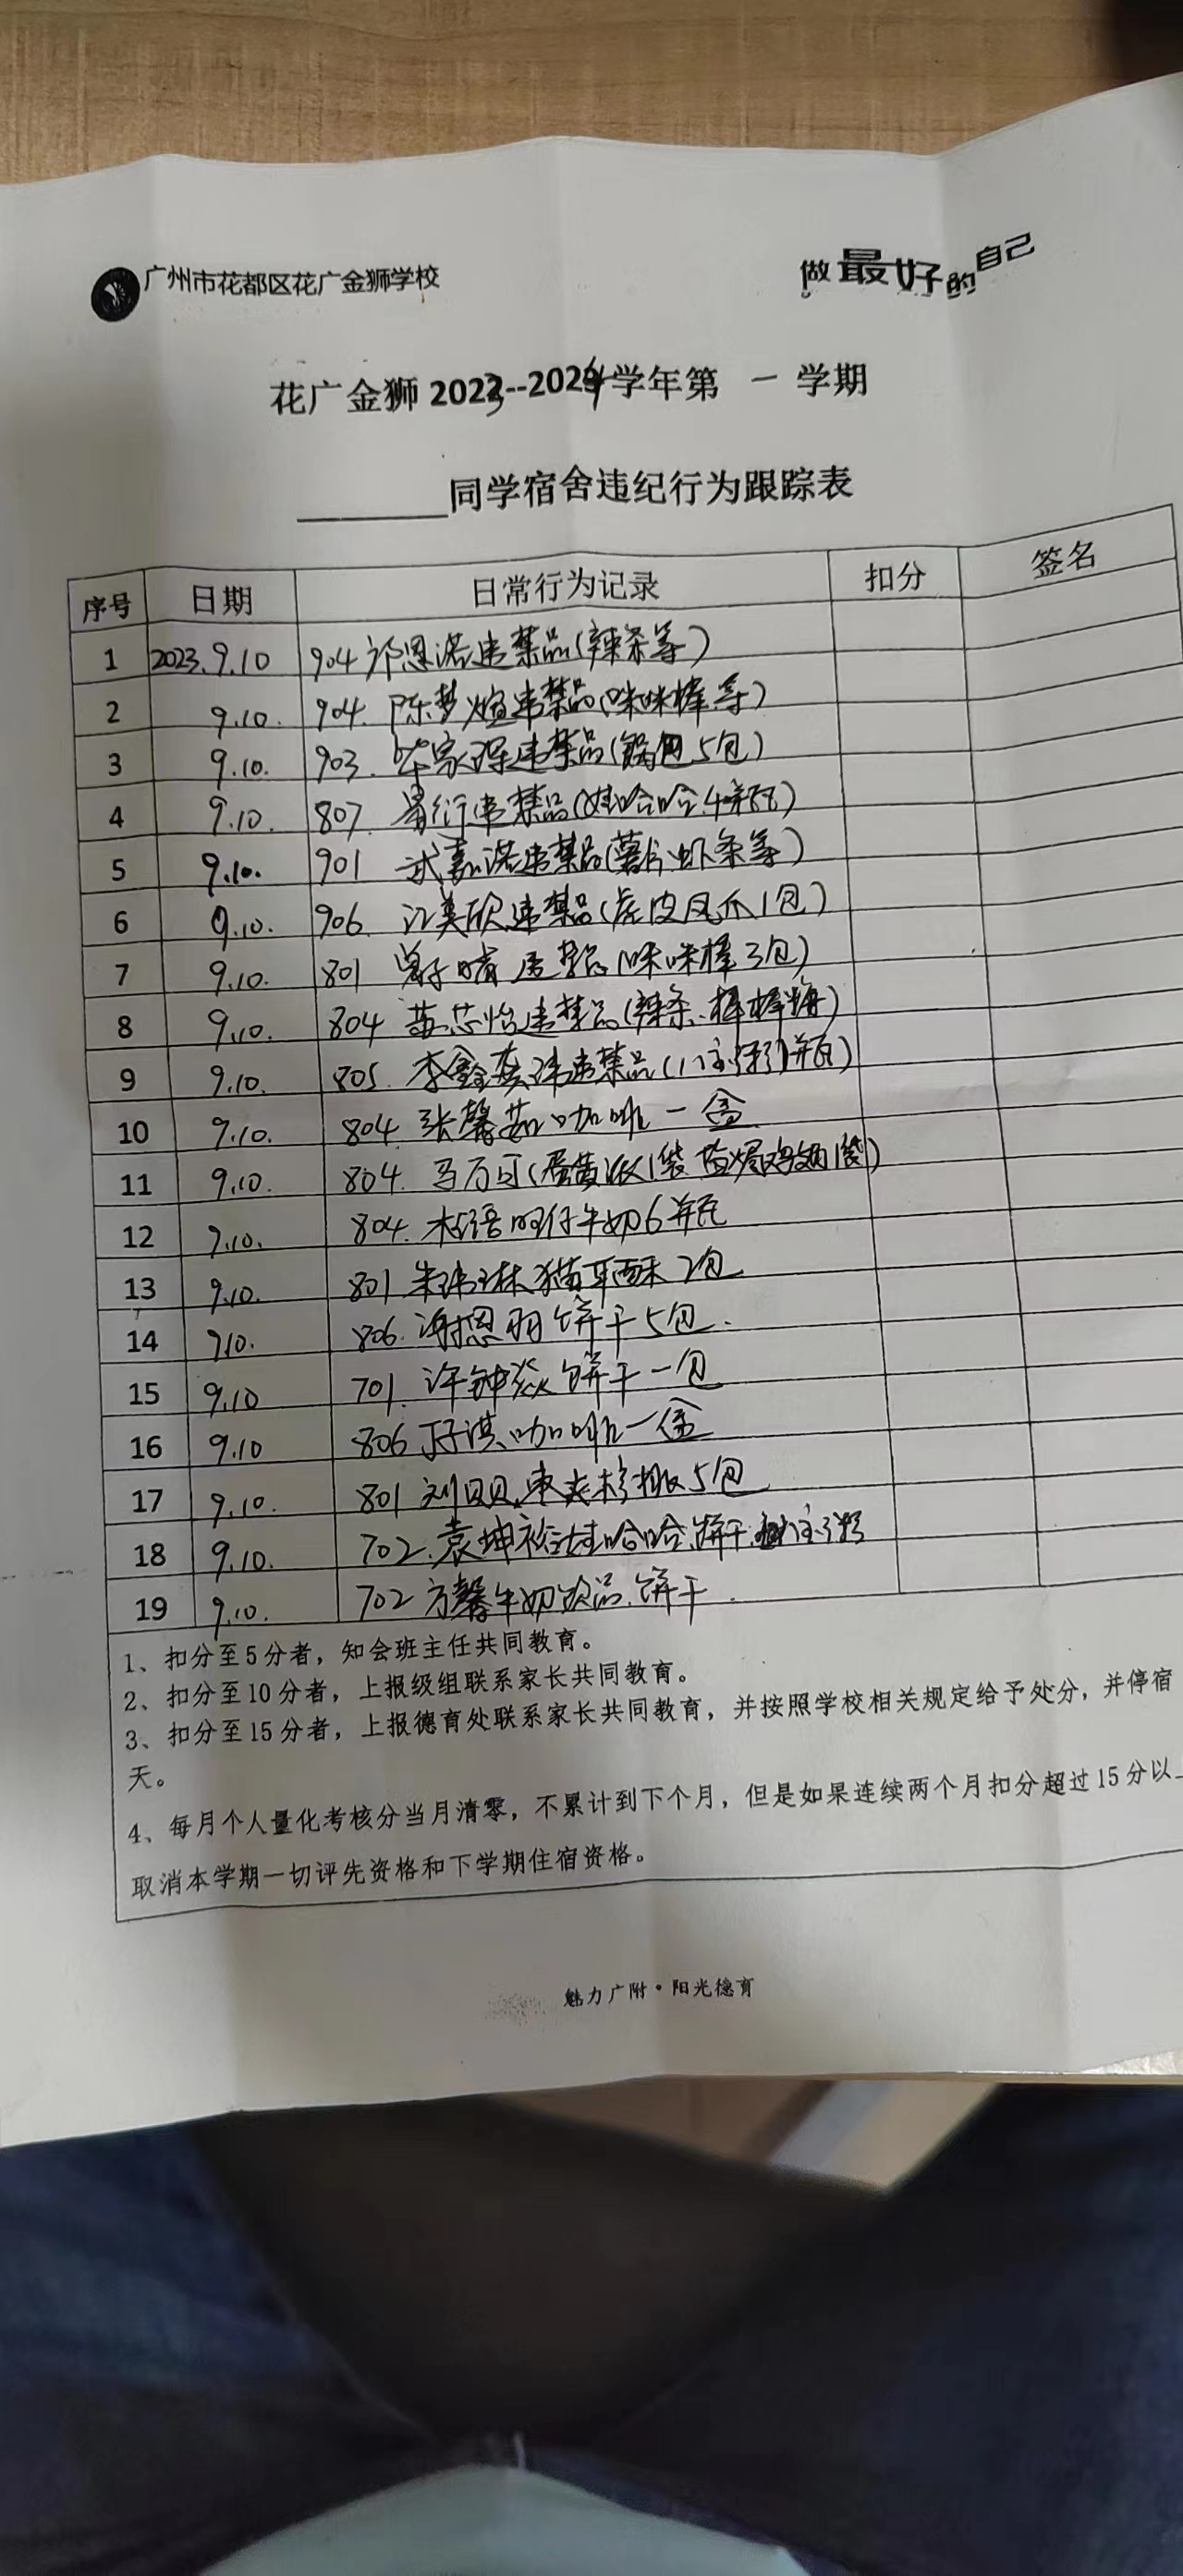 广州市花都区花广金狮学校
做最好的自己
花广金狮 2023--2024学年第 一 学期
同学宿舍违纪行为跟踪表
序号 日期 日常行为记录 扣分 签名
1 2023.9.10 904 祁恩诺违禁品(辣条等)
2 9.10. 904. 陈梦煊违禁品(咪咪棒等)
3 9.10. 903. 家琛违禁品(5包)
4 9.10. 807. 衍违禁品(娃哈哈4瓶)
5 9.10. 901 武嘉诺违禁品(薯片、虾条等)
6 9.10. 906. 江美欣违禁品(虎皮凤爪1包)
7 9.10. 801 曾子晴违禁品(咪咪棒3包)
8 9.10. 804 苏芯怡违禁品(辣条、棒棒糖)
9 9.10. 805. 李鑫违禁品(瓶)
10 9.10. 804. 张馨茹咖啡一盒
11 9.10. 804. 马万可(蛋黄派1袋 盐焗鸡翅1袋)
12 9.10. 804. 杜语旺仔牛奶6瓶
13 9.10. 801. 朱琳猫耳酥2包
14 9.10. 806. 谢恩羽饼干5包.
15 9.10 701. 许钟焱饼干一包
16 9.10 806 丁子淇咖啡一盒
17 9.10. 801 刘贝贝枣夹核桃5包
18 9.10. 702. 袁坤裕娃哈哈.饼干.
19 9.10. 702 方馨牛奶饮品.饼干.
1、扣分至5分者，知会班主任共同教育。
2、扣分至10分者，上报级组联系家长共同教育。
3、扣分至15分者，上报德育处联系家长共同教育，并按照学校相关规定给予处分，并停宿
天。
4、每月个人量化考核分当月清零，不累计到下个月，但是如果连续两个月扣分超过15分以
取消本学期一切评先资格和下学期住宿资格。
魅力广附·阳光德育